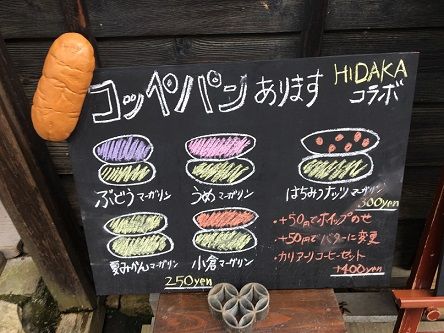 コッペパンあります
HIDAKA
コラボ
ぶどうマーガリン
うめマーガリン
はちみつナッツマーガリン
300yen
夏みかんマーガリン
小倉マーガリン
250yen
・+50円でホイップのせ
・+50円でバターに変更
・カリアーリコーヒーセット
+400yen